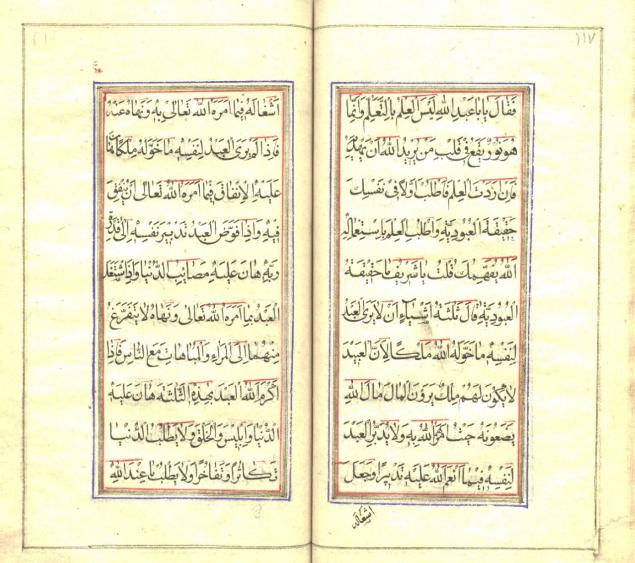 ١١٧
فقال يا با عبد الله ليس العلم بالتعلم وانما
هو نور يقع في قلب من يريد الله ان يهديه
فان اردت العلم فاطلب اولا في نفسك
حقيقة العبودية واطلب العلم باستعماله
الله يفهمك قلت يا شريف ما حقيقة
العبودية قال ثلثة اشياء ان لا يرى العبد
لنفسه ما خوله الله ملكا لان العبيد
لا يكون لهم ملك يرون المال مال الله
يضعونه حيث امرهم الله به ولا يدبر العبد
لنفسه فيما انعم الله عليه تدبيرا وجعل
اشغاله
اشغاله فيما امره الله تعالى به ونهاه عنه
فاذا لم يرى العبد لنفسه ما خوله ملكا هان
عليه الانفاق فيما امره الله تعالى ان ينفق
فيه واذا فوض العبد تدبير نفسه الى
ربه هان عليه مصائب الدنيا واذا اشتغل
العبد بما امره الله تعالى ونهاه لا يتفرغ
منهما الى المراء والمباهات مع الناس فاذا
اكرم الله العبد بهذه الثلثة هان عليه
الدنيا وابليس والخلق ولا يطلب الدنيا
تكاثرا وتفاخرا ولا يطلب ما عند الله